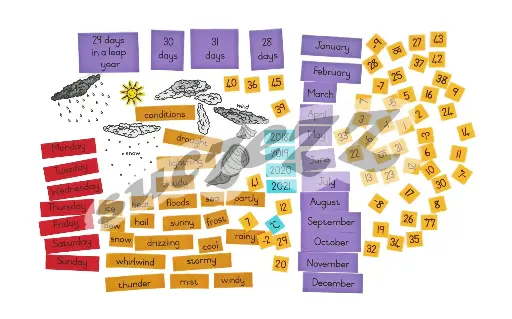 29 days
in a leap
year
30
days
31
days
28
days
January
February
March
April
May
June
July
August
September
October
November
December
40
36
45
39
conditions
drought
lightning
cloudy
snow
Monday
Tuesday
Wednesday
Thursday
Friday
Saturday
Sunday
2018
2019
2020
2021
41
12
°C
7
-2
29
20
ice
heat
floods
sea
partly
dew
hail
sunny
frost
snow
drizzling
cool
rainy
whirlwind
stormy
thunder
mist
windy
-9
27
43
28
37
42
-7
25
38
5
16
9
24
14
6
11
10
30
-8
17
26
77
19
34
35
32